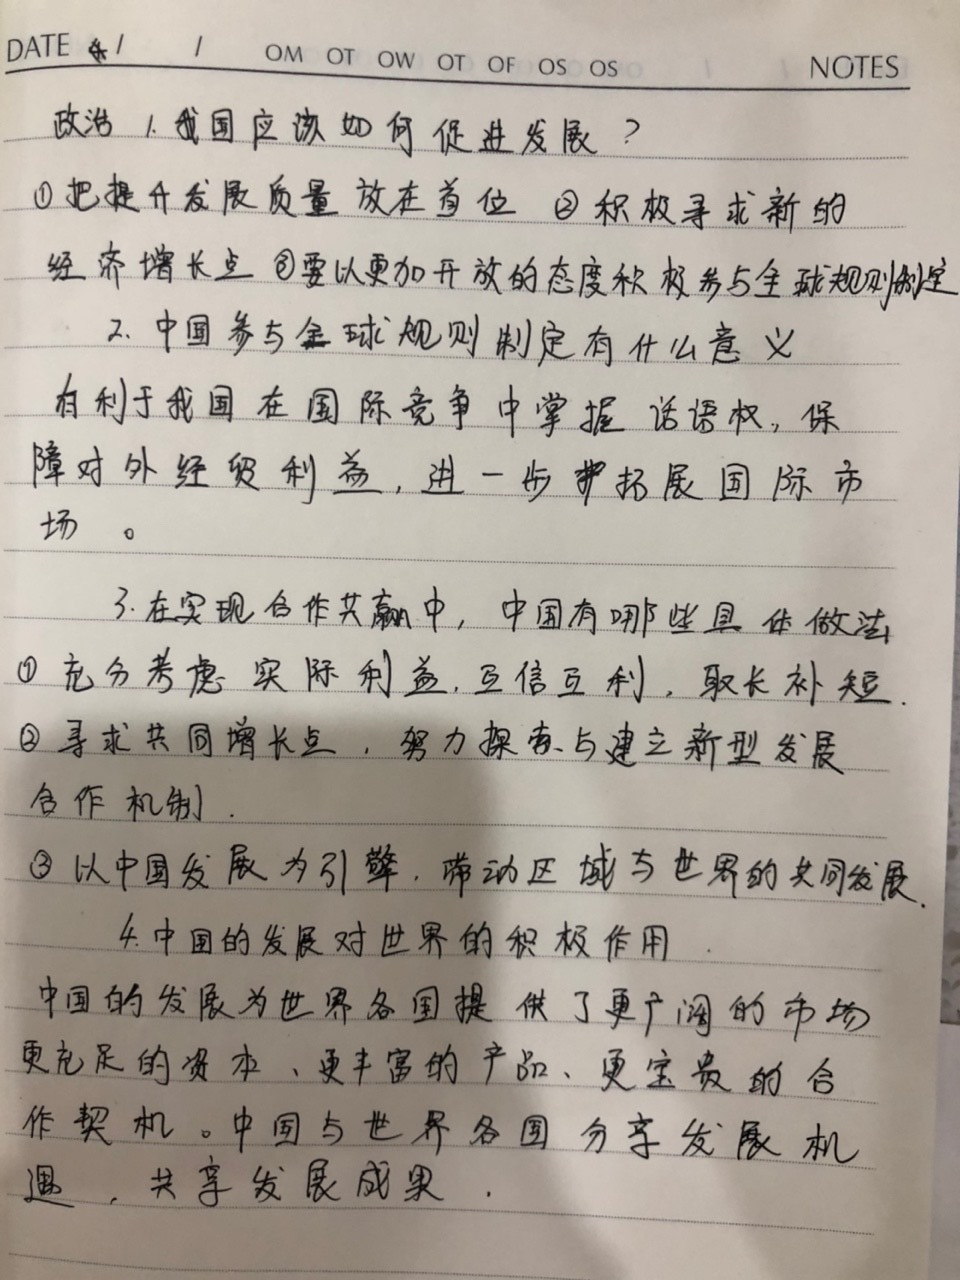 DATE / / OM OT OW OT OF OS OS NOTES
政治 1.我国应该如何促进发展？
①把提升发展质量放在首位 ②积极寻求新的
经济增长点 ③要以更加开放的态度积极参与全球规则制定
2.中国参与全球规则制定有什么意义
有利于我国在国际竞争中掌握话语权，保
障对外经贸利益，进一步拓展国际市
场。
3.在实现合作共赢中，中国有哪些具体做法
①充分考虑实际利益，互信互利，取长补短．
②寻求共同增长点，努力探索与建立新型发展
合作机制．
③以中国发展为引擎，带动区域与世界的共同发展．
4.中国的发展对世界的积极作用．
中国的发展为世界各国提供了更广阔的市场
更充足的资本、更丰富的产品、更宝贵的合
作契机。中国与世界各国分享发展机
遇，共享发展成果．